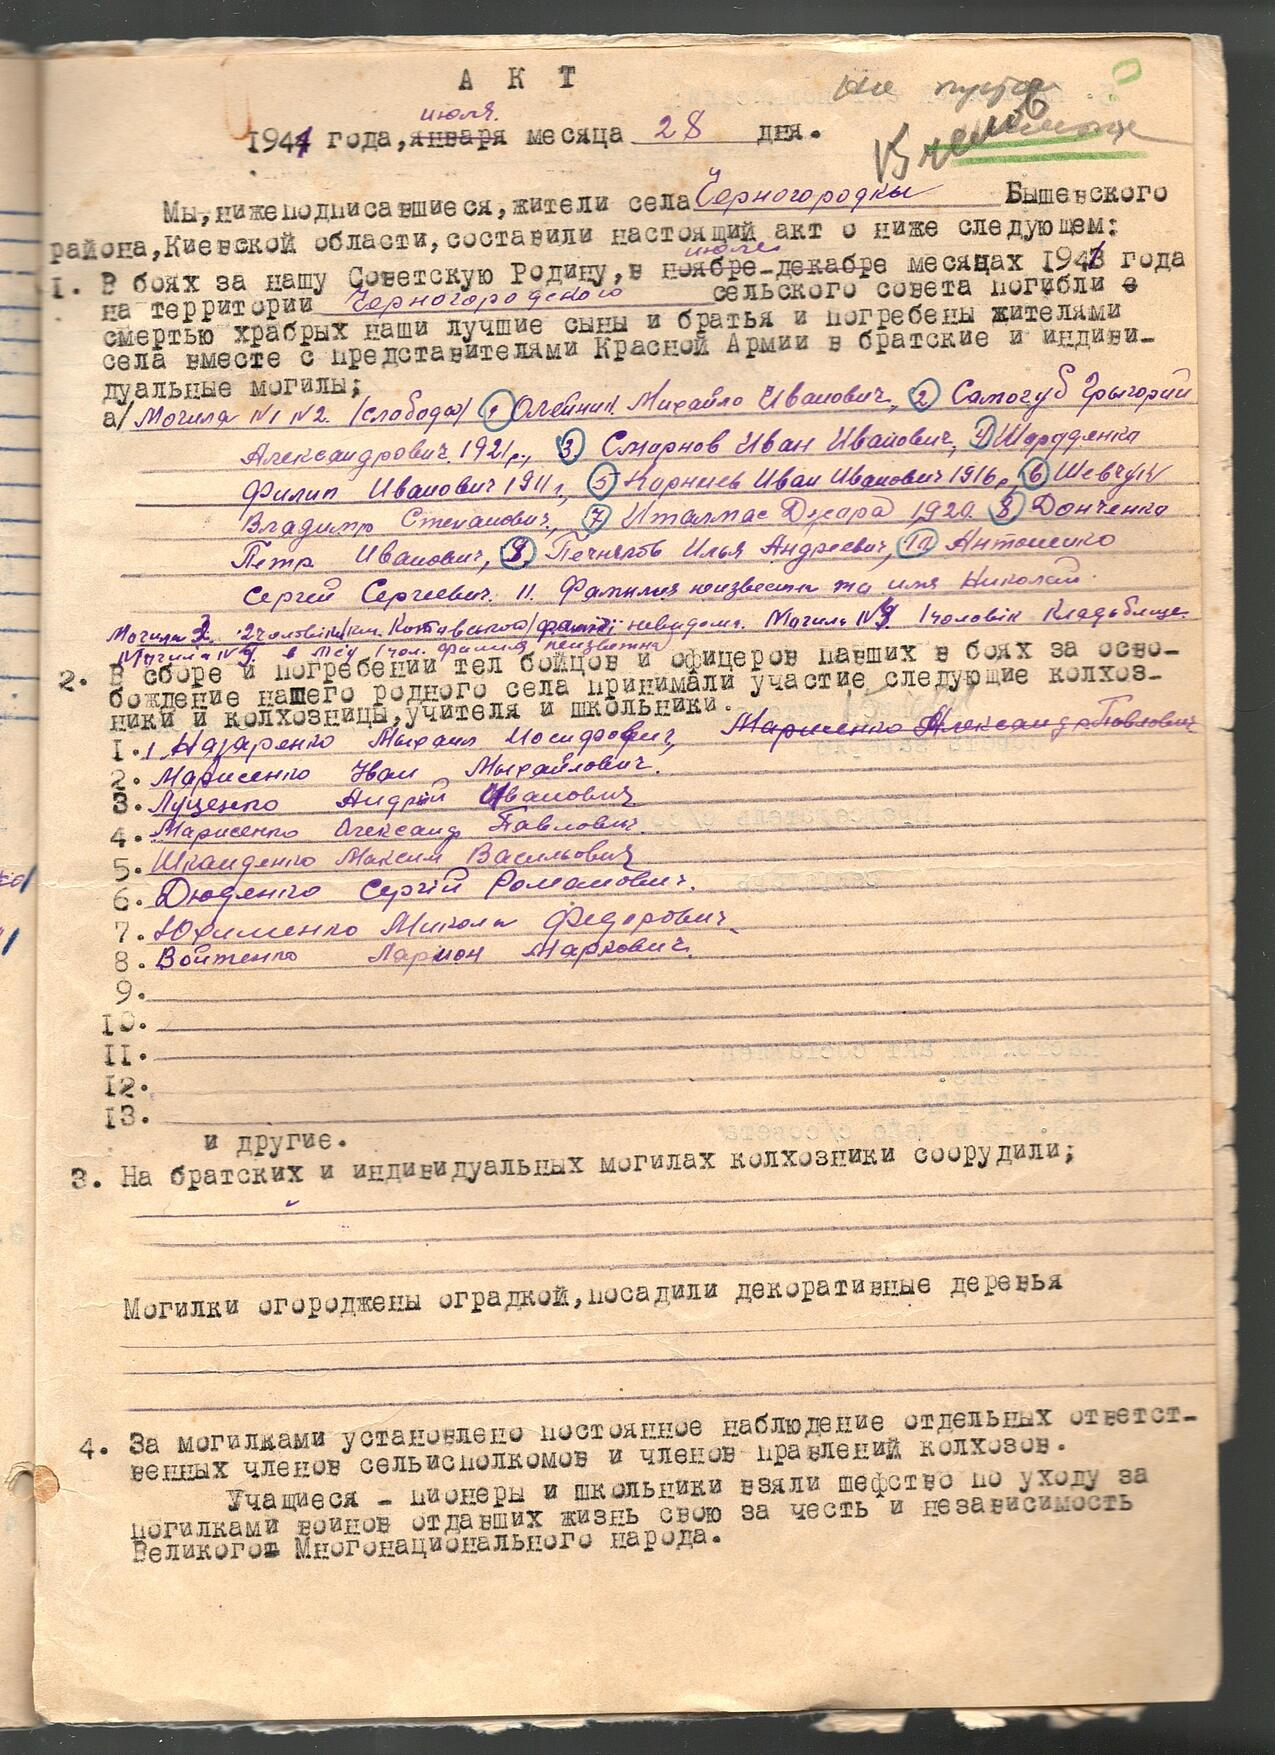 А К Т
июля.
1944 года, января месяца 28 дня.
Мы, нижеподписавшиеся, жители села Черногородки Бышевского
района, Киевской области, составили настоящий акт о ниже следующем:
июле
1. В боях за нашу Советскую Родину, в ноябре-декабре месяцах 1941 года
на территории Черногородского сельского совета погибли с
смертью храбрых наши лучшие сыны и братья и погребены жителями
села вместе с представителями Красной Армии в братские и индиви-
дуальные могилы;
а/ Могила №1 №2. (слобода) 1 Олейник Михайло Иванович, 2 Самогуб Грыгорий
Александрович 1921 г., 3 Смирнов Иван Иванович, 4
Филип Иванович 1911 г., 5 Корниев Иван Иванович 1916 г., 6 Шевчук
Владимир Степанович, 7 Италмас Джара 1920 8 Донченко
Петр Иванович, 9. Илья Андреевич, 10 Антоненко
Сергей Сергеевич. 11. Фамилия неизвестн та имя Николай.
Могила 3. 2 чоловіки невидома. Могила № 1 чоловік Кладбище.
Могила № 1 чол. неизвестна
2. В сборе и погребении тел бойцов и офицеров павших в боях за осво-
бождение нашего родного села принимали участие следующие колхоз-
ники и колхозницы, учителя и школьники.
1. 1 Назаренко Михаил Иосифович, Марисенко Александр Павлович
2. Марисенко Иван Мыхайлович.
3. Луценко Андрій Иванович
4. Марисенко Олександр Павлович.
5. Шкамденко Максим Васильович
6. Дюденко Сергій Романович.
7. Юхименко Микола Федорович.
8. Войтенко Ларион Маркович.
9.
10.
11.
12.
13.
и другие.
3. На братских и индивидуальных могилах колхозники соорудили;
Могилки огороджены оградкой, посадили декоративные деревья
4. За могилками установлено постоянное наблюдение отдельных ответст-
венных членов сельисполкомов и членов правлений колхозов.
Учащиеся - пионеры и школьники взяли шефство по уходу за
погилками воинов отдавших жизнь свою за честь и независимость
Великого Многонационального народа.